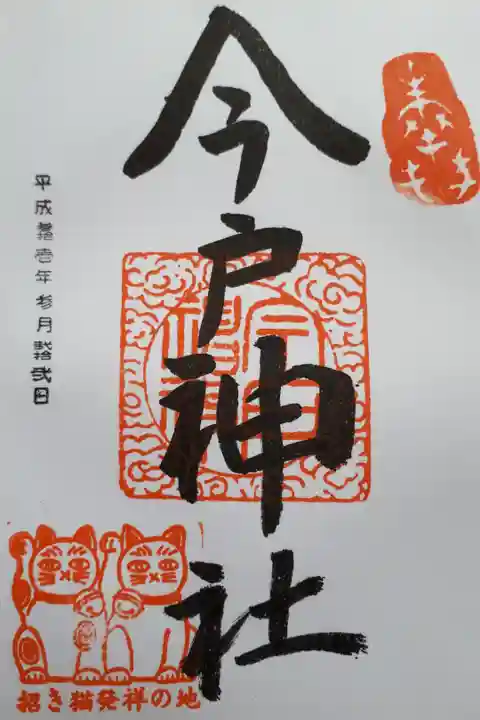 奉拝
今戸神社
平成参拾壱年参月弐拾弐日
招き猫発祥の地